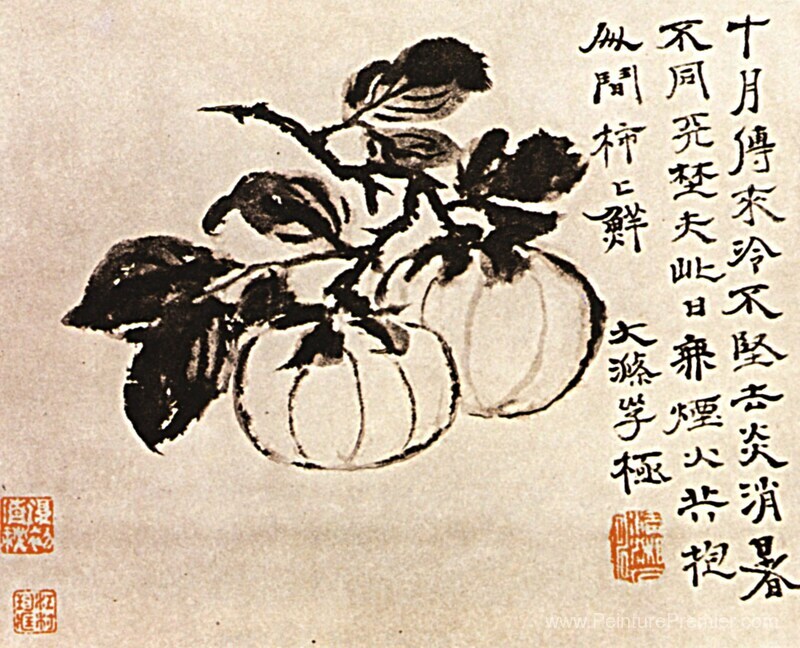 十月傳來冷不堅去炎消暑
不同天埜夫此日無煙火共抱
柿上鮮
大滌子極
www.PeinturePremier.com